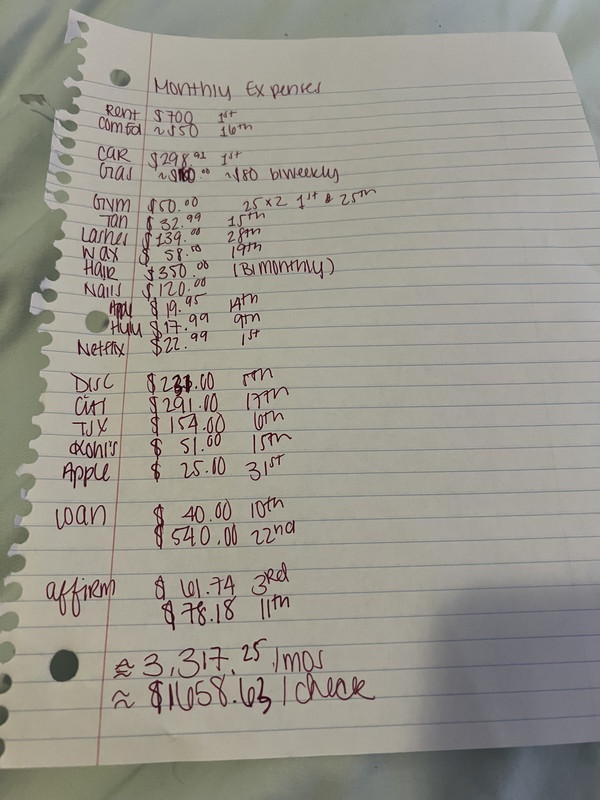 Monthly Expenses
Rent $700 1st
ComEd ~$50 16th
Car $298.92 1st
Gas ~$160.00 ~$80 biweekly
Gym $50.00 25x2 1st & 25th
Tan $32.99 15th
Lashes $139.00 28th
Wax $58.50 19th
Hair $350.00 (Bimonthly)
Nails $120.00
Apple $19.95 14th
Hulu $17.99 9th
Netflix $22.99 1st
Disc $231.00
Citi $291.00 17th
TJX $154.00 6th
Kohl's $51.00 15th
Apple $25.00 31st
Loan $40.00 10th
$540.00 22nd
affirm $61.74 3rd
$78.18 11th
≈ 3,317.25 /mos
≈ $1658.63 / check